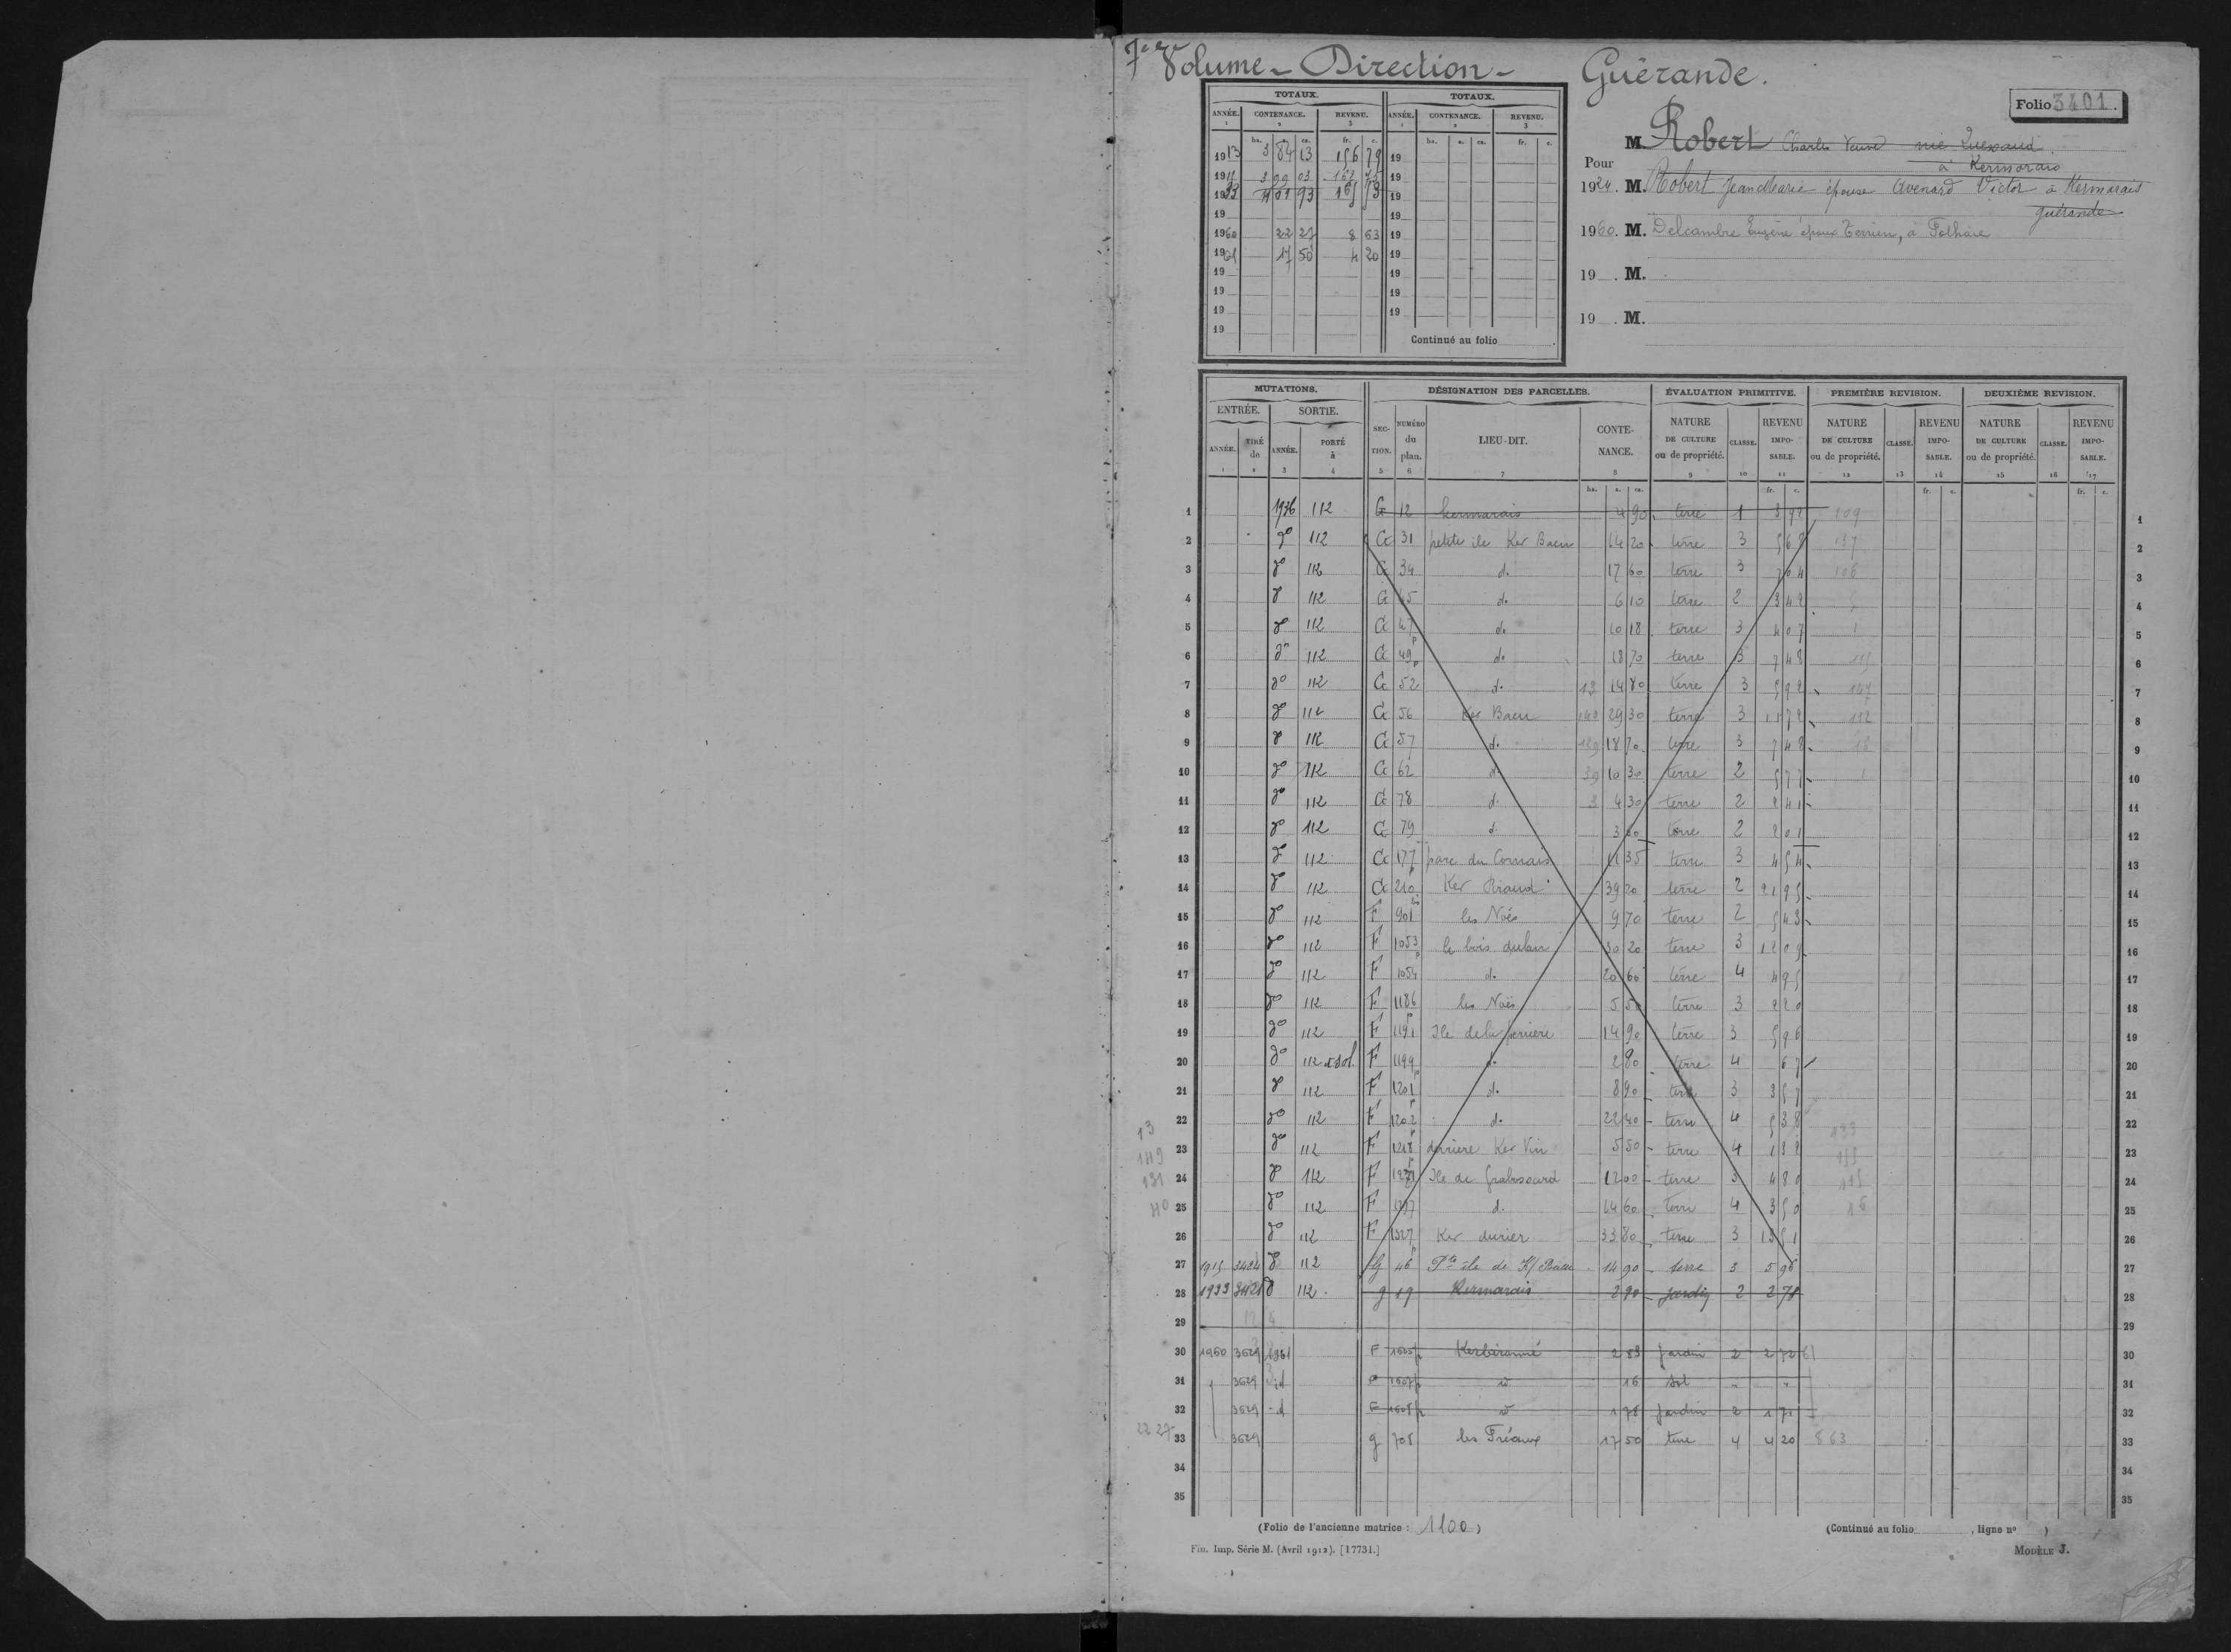 7ème Volume - Direction - Guérande.
Folio 3401.
TOTAUX. TOTAUX.
ANNÉE. CONTENANCE. REVENU. ANNÉE. CONTENANCE. REVENU.
1 2 3 1 2 3
ha. a. ca. fr. c. ha. a. ca. fr. c.
1913 3 84 13 156 79 19
1915 3 99 03 162 75 19
1933 4 01 93 165 53 19
19 19
1960 22 27 8 63 19
1961 17 50 4 20 19
19 19
19 19
19 19
19
Continué au folio .
M. Robert Charles Veuve née
à Kermarais
Pour
1924. M. Robert Jean Marie épouse Avenard Victor à Kermarais
guérande
1960. M. Delcambre Eugène époux Terrien, à
19 . M.
19 . M.
MUTATIONS. DÉSIGNATION DES PARCELLES. ÉVALUATION PRIMITIVE. PREMIÈRE REVISION. DEUXIÈME REVISION.
ENTRÉE. SORTIE.
ANNÉE. TIRÉ de ANNÉE. PORTÉ à SECTION. NUMÉRO du plan. LIEU-DIT. CONTENANCE. NATURE DE CULTURE ou de propriété. CLASSE. REVENU IMPOSABLE. NATURE DE CULTURE ou de propriété. CLASSE. REVENU IMPOSABLE. NATURE DE CULTURE ou de propriété. CLASSE. REVENU IMPOSABLE.
1 2 3 4 5 6 7 8 9 10 11 12 13 14 15 16 17
ha. a. ca. fr. c. fr. c. fr. c.
1 1936 112 G 12 Kermarais 4 90 terre 1 3 92 109 1
2 do 112 G 31 petite ile Ker Baen 14 20 terre 3 5 68 137 2
3 do 112 G 34 do 17 60 terre 3 7 04 106 3
4 do 112 G 45 do 6 10 terre 2 3 42 4
5 do 112 G 47 do 10 18 terre 3 4 07 5
6 do 112 G 49p do 18 70 terre 3 7 48 6
7 do 112 G 52 do 14 80 terre 3 5 92 7
8 do 112 G 56 Ker Baen 29 30 terre 3 11 72 8
9 do 112 G 57 do 18 70 terre 3 7 48 9
10 do 112 G 62 do 10 30 terre 2 5 77 10
11 do 112 G 78 do 4 30 terre 2 2 41 11
12 do 112 G 79 do 3 60 terre 2 2 01 12
13 do 112 G 177 parc du Cormais 11 35 terre 3 4 54 13
14 do 112 G 210 Ker Riaud 39 20 terre 2 21 95 14
15 do 112 F 901 les Noës 9 70 terre 2 5 43 15
16 do 112 F 1053 le bois dulan 30 20 terre 3 12 09 16
17 do 112 F 1054 do 20 60 terre 4 4 95 17
18 do 112 F 1186 les Noës 5 50 terre 3 2 20 18
19 do 112 F 1191 Ile de la perriere 14 90 terre 3 5 96 19
20 do 112 F 1199 do 2 80 terre 4 67 20
21 do 112 F 1201 do 8 90 terre 3 3 57 21
22 do 112 F 1202 do 22 40 terre 4 5 38 22
23 do 112 F 1218 derriere Ker Vin 5 50 terre 4 1 32 23
24 do 112 F Ile de Grabosourd 12 00 terre 3 4 80 24
25 do 112 F do 14 60 terre 4 3 50 25
26 do 112 F 1327 Ker durier 33 80 terre 3 13 51 26
27 1915 3424 do 112 G 46p Pte île de K/ Baen 14 90 terre 3 5 96 27
28 1933 3421 do 112 g 19 Kermarais 2 90 jardin 2 2 78 28
29 29
30 1960 3629 1961 F 1605p Kerbironné 2 83 jardin 2 2 72 30
31 3629 id F 1607p do 16 sol - - 31
32 3629 id F 1608p do 1 78 jardin 2 1 71 32
22 27 33 3629 g 708 les Fréaux 17 50 terre 4 4 20 8 63 33
34 34
35 35
13
149
131
40
(Folio de l'ancienne matrice : 1100)
(Continué au folio , ligne n° )
Fin. Imp. Série M. (Avril 1912). [17731.]
MODÈLE J.